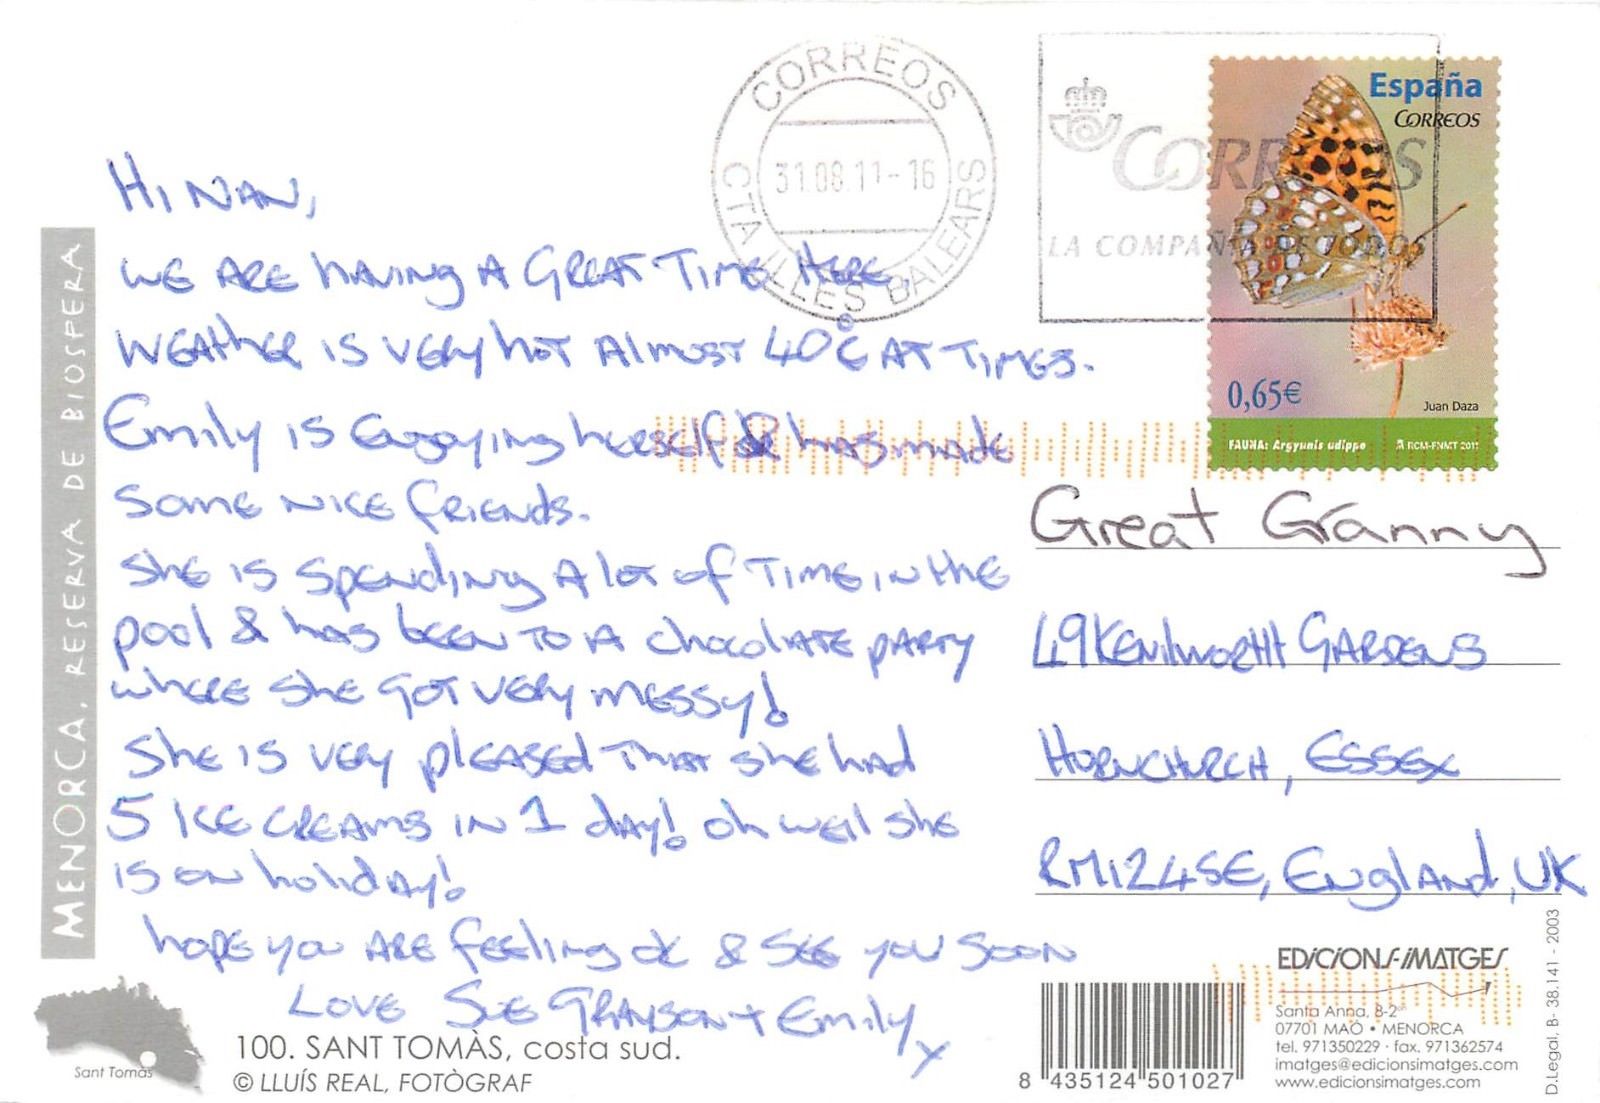 CORREOS
31.08.11-16
CTA ILLES BALEARS
CORREOS
LA COMPAÑIA DE TODOS
España
CORREOS
0,65€
Juan Daza
FAUNA: Argynnis adippe
RCM-FNMT 2011
HI NAN,
WE ARE having A GREAT TIME HERE,
WEATHER IS VERY hOT AlMOST 40°C AT TIMES.
Emily is Enjoying herself & has made
Some NICE friends.
She is spending A lot of TIME in the
pool & has been TO A chocolate party
where she GOT very messy!
She is very pleased that she had
5 ICE CREAMS IN 1 day! oh well she
is on holiday!
hope you ARE feeling ok & SEE you Soon
LOVE Sue GRAYSON + Emily x
Great Granny
49 KENILWORTH GARDENS
HORNCHURCH, ESSEX
RM12 4SE, ENGLAND, UK
MENORCA, RESERVA DE BIOSFERA
Sant Tomàs
100. SANT TOMÀS, costa sud.
© LLUÍS REAL, FOTÒGRAF
8 435124 501027
EDICIONS-IMATGES
Santa Anna, 8-2on
07701 MAÓ • MENORCA
tel. 971350229 · fax. 971362574
imatges@edicionsimatges.com
www.edicionsimatges.com
D.Legal, B- 38.141 - 2003